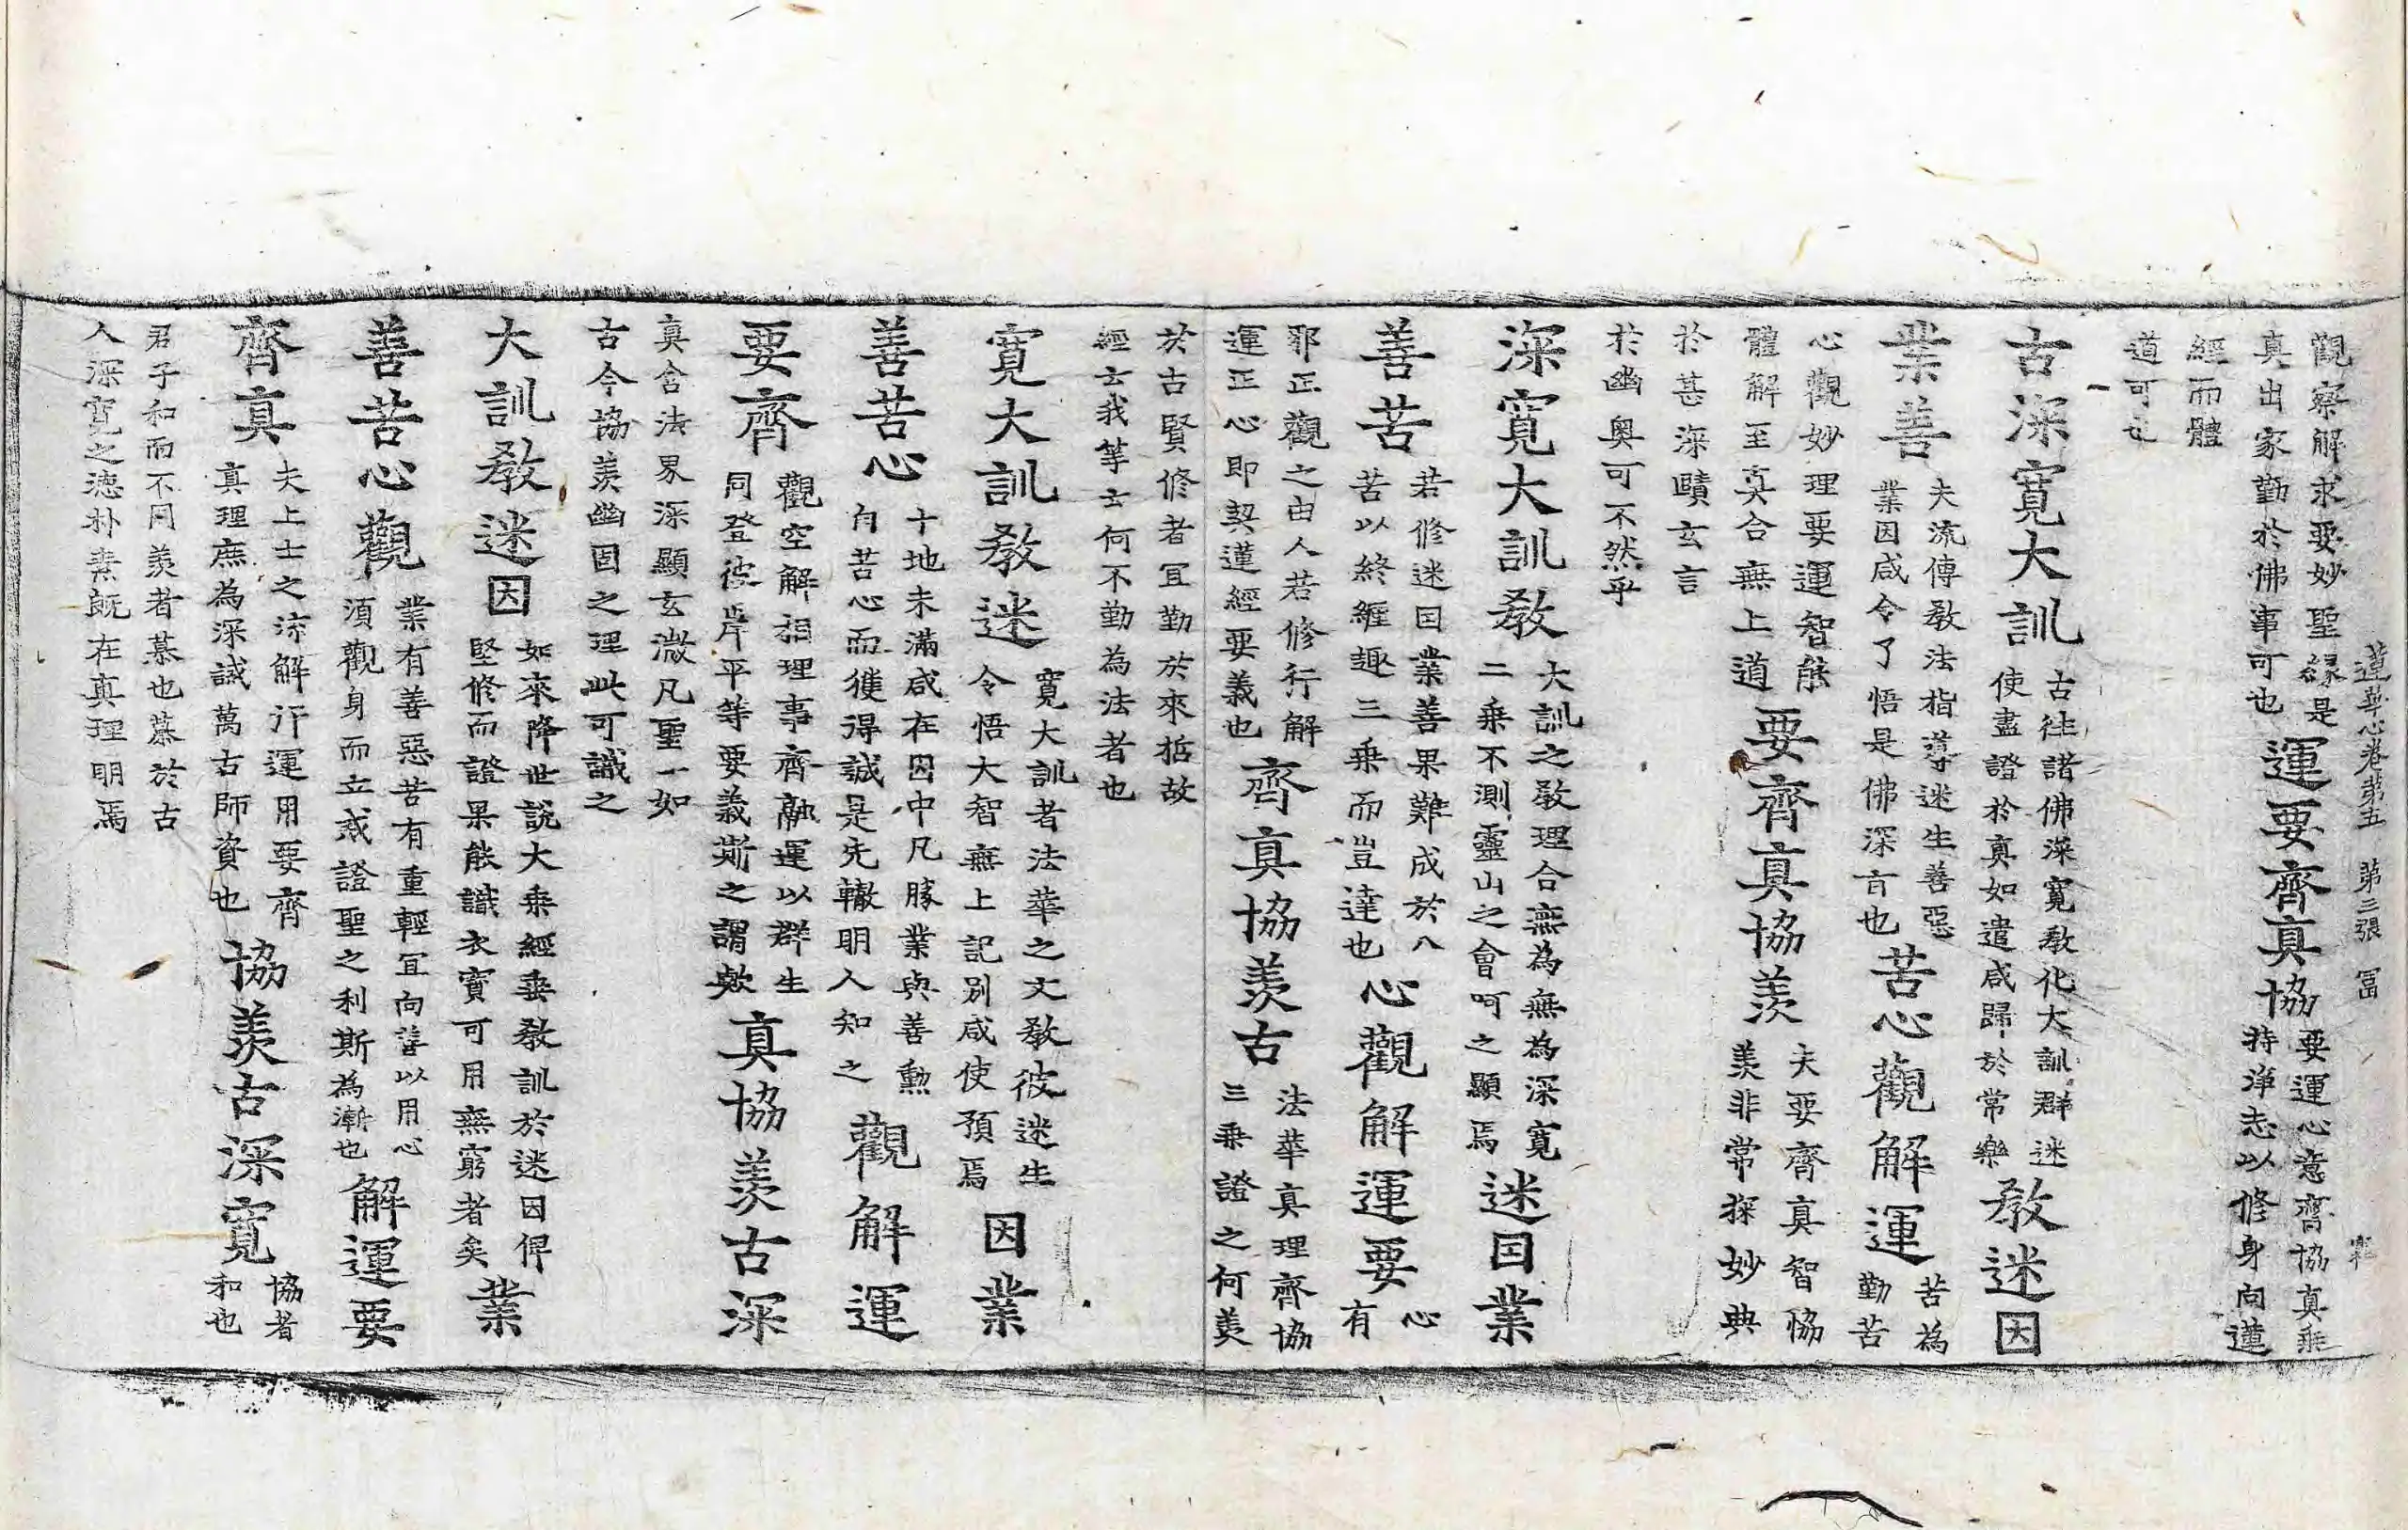 蓮華心卷第五 第三張 冨
觀察解求要妙聖緣是
真出家勤於佛事可也
運要齊真協
要運心意齊協真乘
持淨志以修身向蓮
經而體
道可也
古深寬大訓
古往諸佛深寬教化大訓群迷
使盡證於真如遣咸歸於常樂
教迷因
業善
夫流傳教法指導迷生善惡
業因咸令了悟是佛深言也
苦心觀解運
苦為
勤苦
心觀妙理要運智能
體解至真合無上道
要齊真協羨
夫要齊真智協
羨非常探妙典
於甚深賾玄言
於幽奧可不然乎
深寬大訓教
大訓之教理合無為無為深寬
二乘不測靈山之會呵之顯焉
迷因業
善苦
若修迷因業善果難成於八
苦以終纏趣三乘而豈達也
心觀解運要
心
有
邪正觀之由人若修行解
運正心即契蓮經要義也
齊真協羨古
法華真理齊協
三乘證之何羨
於古賢修者冝勤於來哲故
經云我等云何不勤為法者也
寬大訓教迷
寬大訓者法華之文教彼迷生
令悟大智無上記別咸使預焉
因業
善苦心
十地未滿咸在因中凡勝業與善勲
自苦心而獲得誠是先轍明人知之
觀解運
要齊
觀空解相理事齊融運以群生
同登彼岸平等要義斯之謂歟
真協羨古深
真含法界深顯玄微凡聖一如
古今協羨幽固之理此可識之
大訓教迷因
如來降世說大乘經垂教訓於迷因俾
堅修而證果能識衣寶可用無窮者矣
業
善苦心觀
業有善惡苦有重輕冝向善以用心
須觀身而立戒證聖之利斯為漸也
解運要
齊真
夫上士之流解行運用要齊
真理庶為深誠萬古師資也
協羨古深寬
協者
和也
君子和而不同羨者慕也慕於古
人深寬之德朴素既在真理明焉